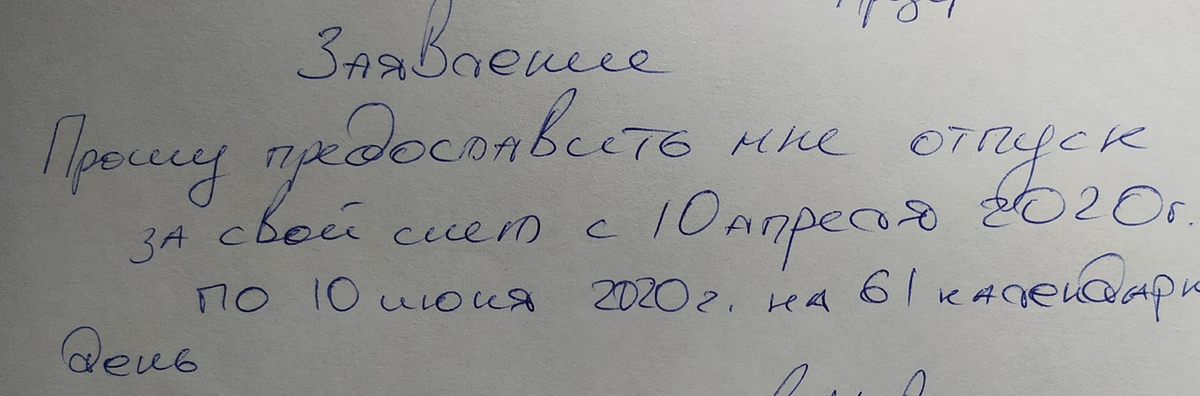 Заявление
Прошу предоставить мне отпуск
за свой счет с 10 апреля 2020г.
по 10 июня 2020г. на 61 календарн
день